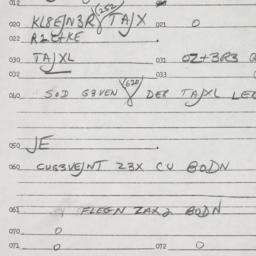 012
020 KL8EJN3R (252) TAJX 021 0
022 R1L+KE
030 TAJXL 031 OZ+3R3
032 033
040 SOD G3VEN (628) DER TAJXL LE
050 JE
060 CUG3VEJNT Z3X CU BODN
061 FLEGN ZAX2 BODN
070 0
071 0 072 0